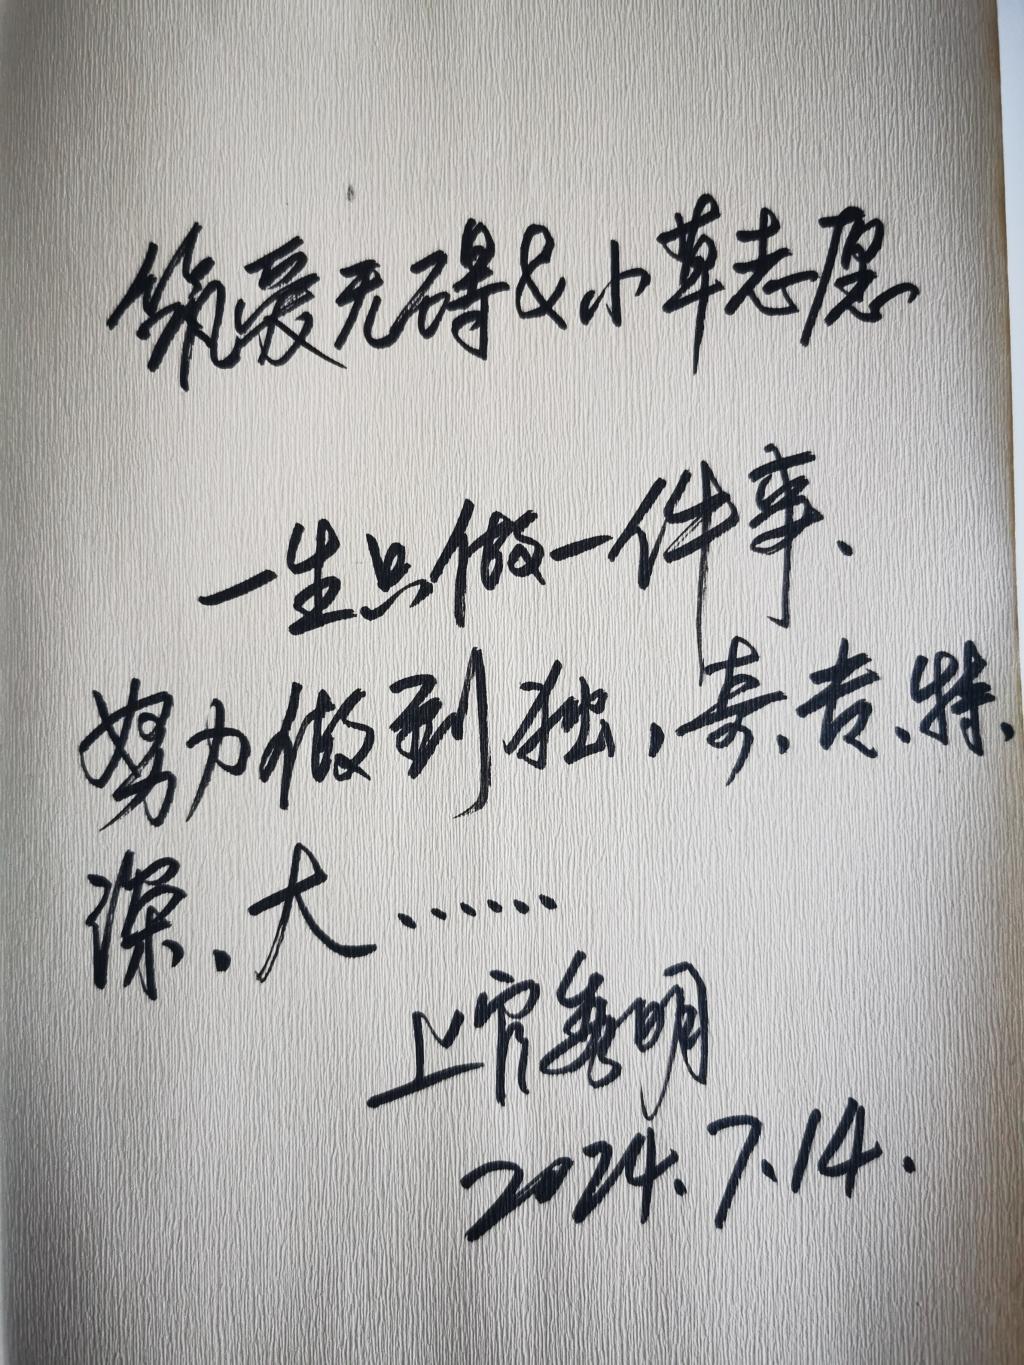 筑爱无碍&小草志愿
一生只做一件事、
努力做到独、奇、专、特、
深、大……
上官秀明
2024.7.14.